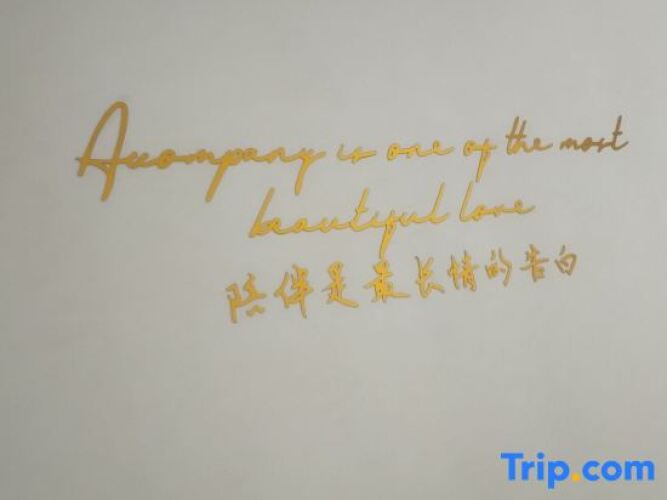 Accompany is one of the most
beautiful love
陪伴是最长情的告白
Trip.com